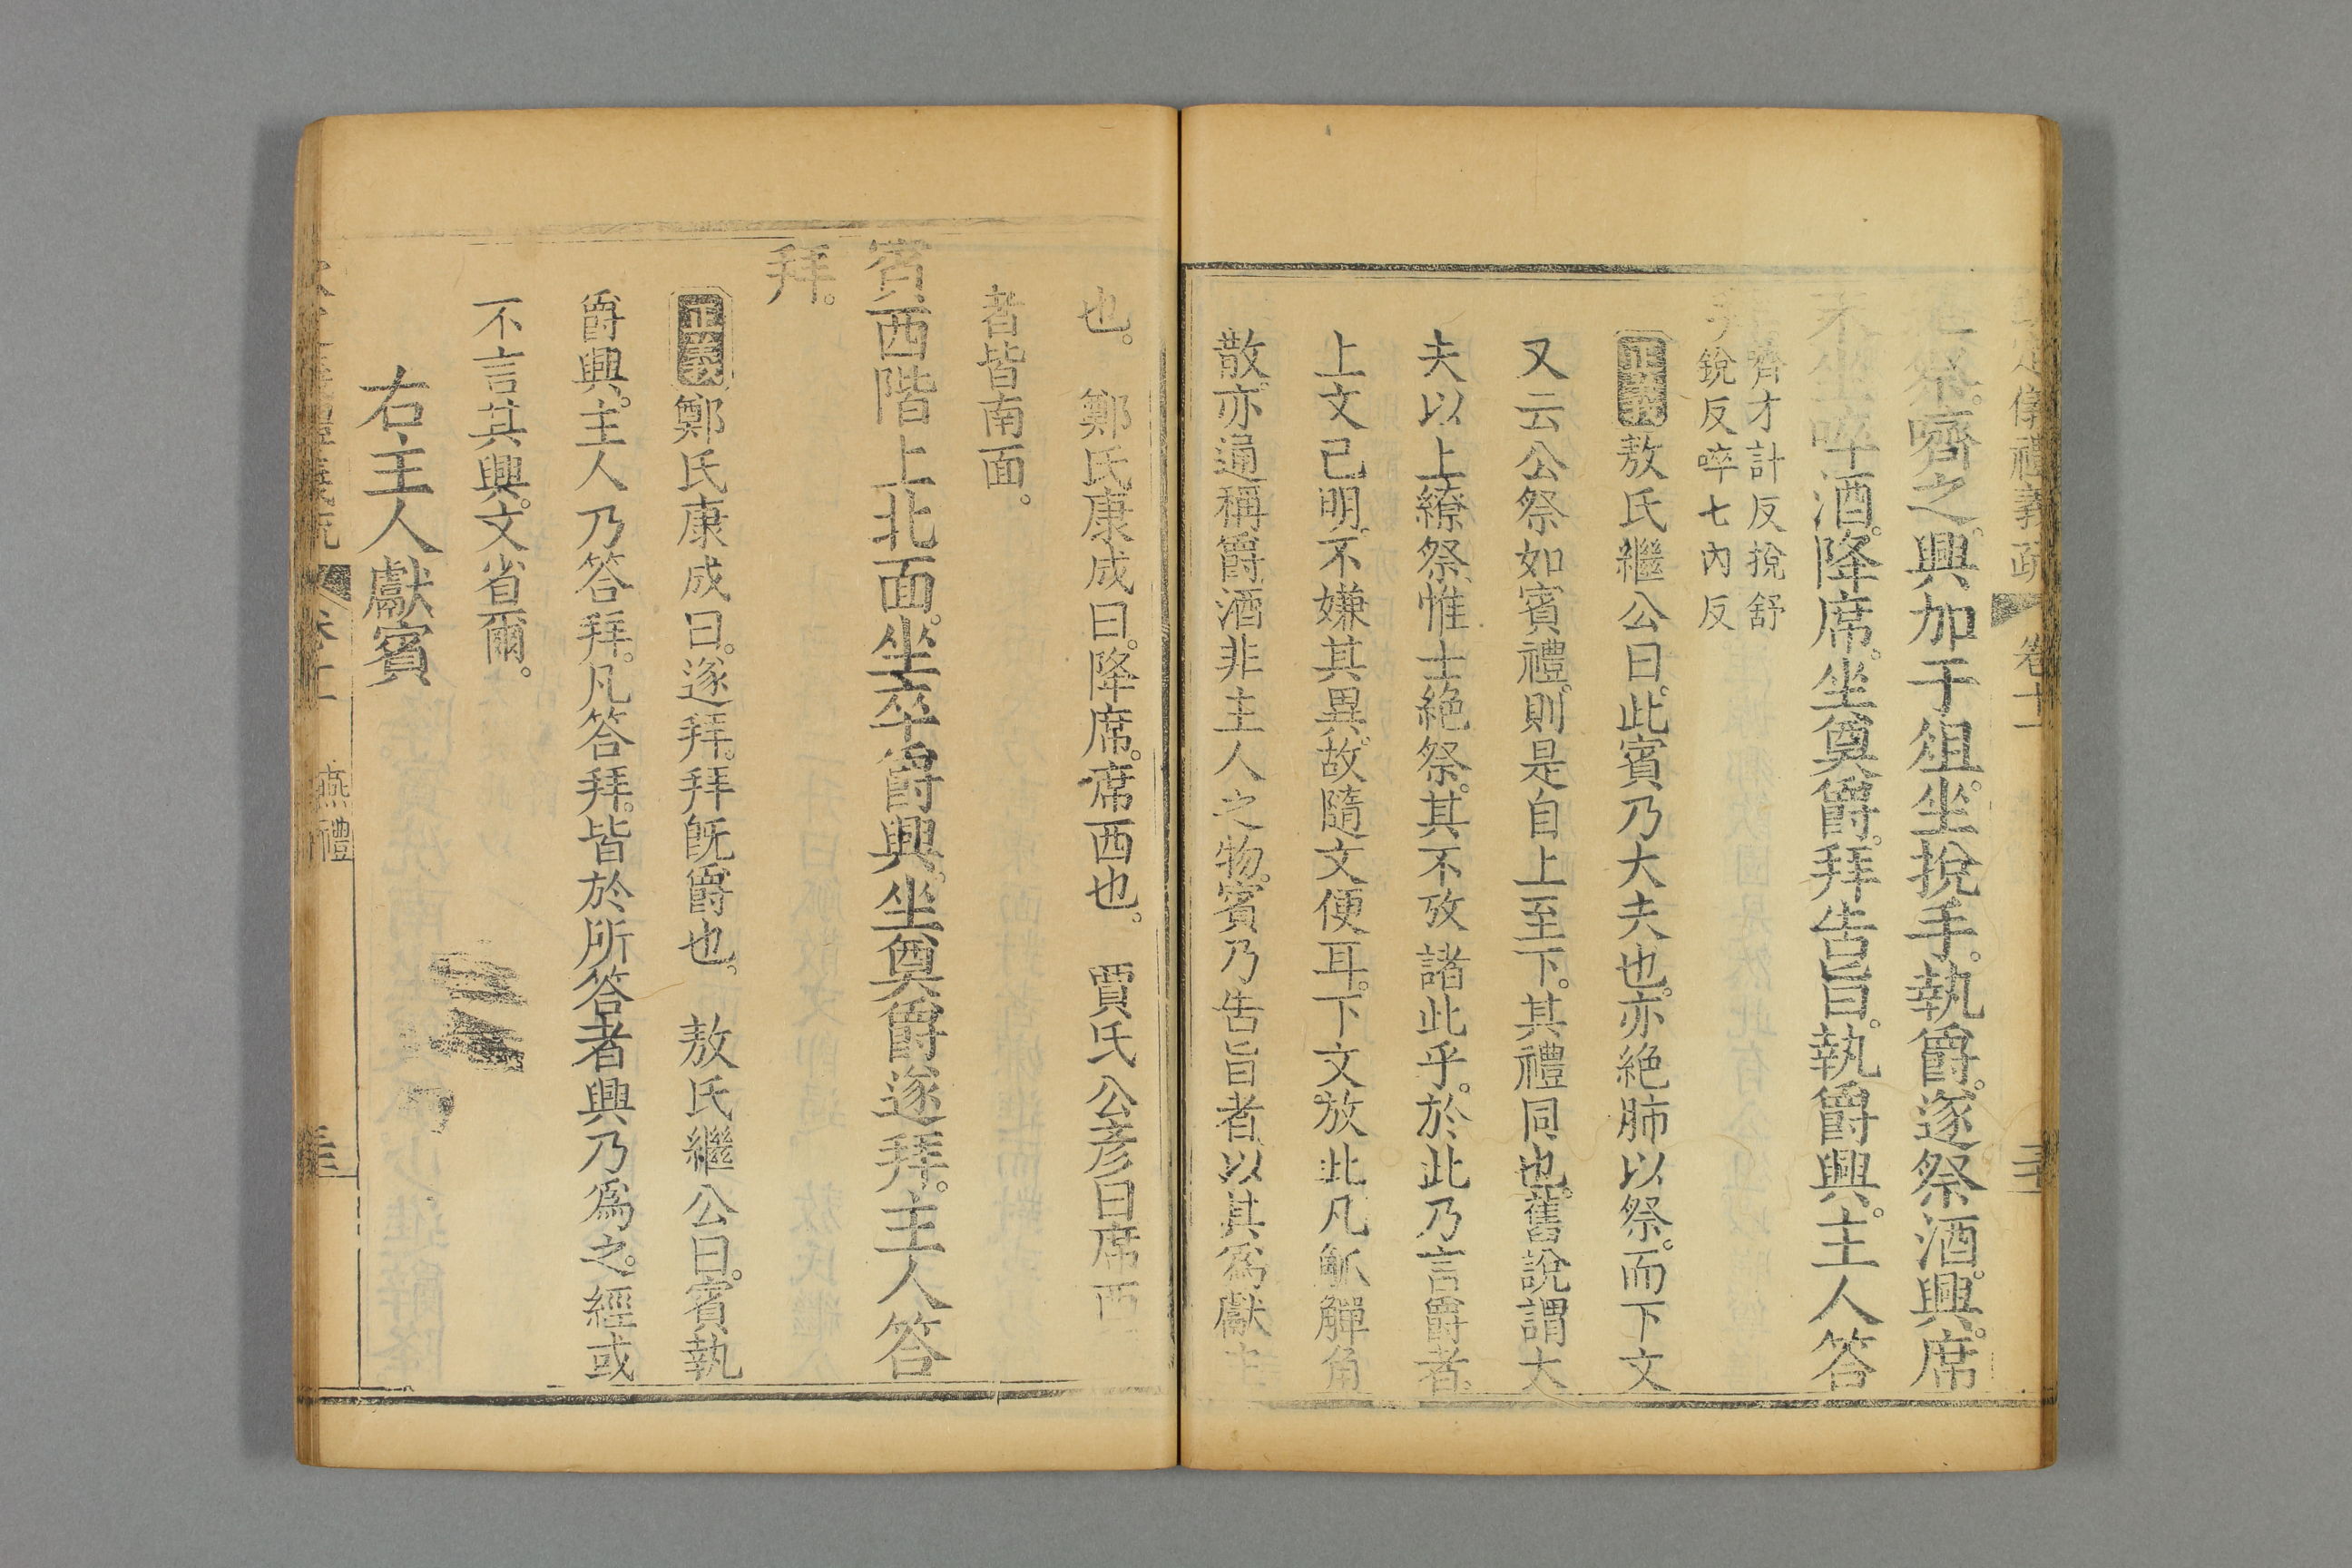 定儀禮義疏 卷十一
祭嚌之。興加于俎。坐挩手。執爵。遂祭酒。興。席
末坐啐酒。降席。坐奠爵。拜告旨。執爵興。主人答
嚌才計反挩舒
銳反啐七內反
正義敖氏繼公曰。此賓乃大夫也。亦絶肺以祭。而下文
又云公祭如賓禮。則是自上至下。其禮同也。舊說謂大
夫以上繚祭。惟士絶祭。其不攷諸此乎。於此乃言爵者。
上文已明。不嫌其異。故隨文便耳。下文放此凡觚觶角
散。亦通稱爵酒非主人之物。賓乃告旨者以其爲獻主
也。 鄭氏康成曰。降席。席西也。 賈氏公彥曰席西
者皆南面。
賓西階上北面。坐卒爵興。坐奠爵遂拜。主人答
拜。
正義鄭氏康成曰。遂拜。拜旣爵也。 敖氏繼公曰。賓執
爵興。主人乃答拜。凡答拜。皆於所答者興乃爲之。經或
不言其興。文省爾。
右主人獻賓
禮義疏 卷十一 燕禮